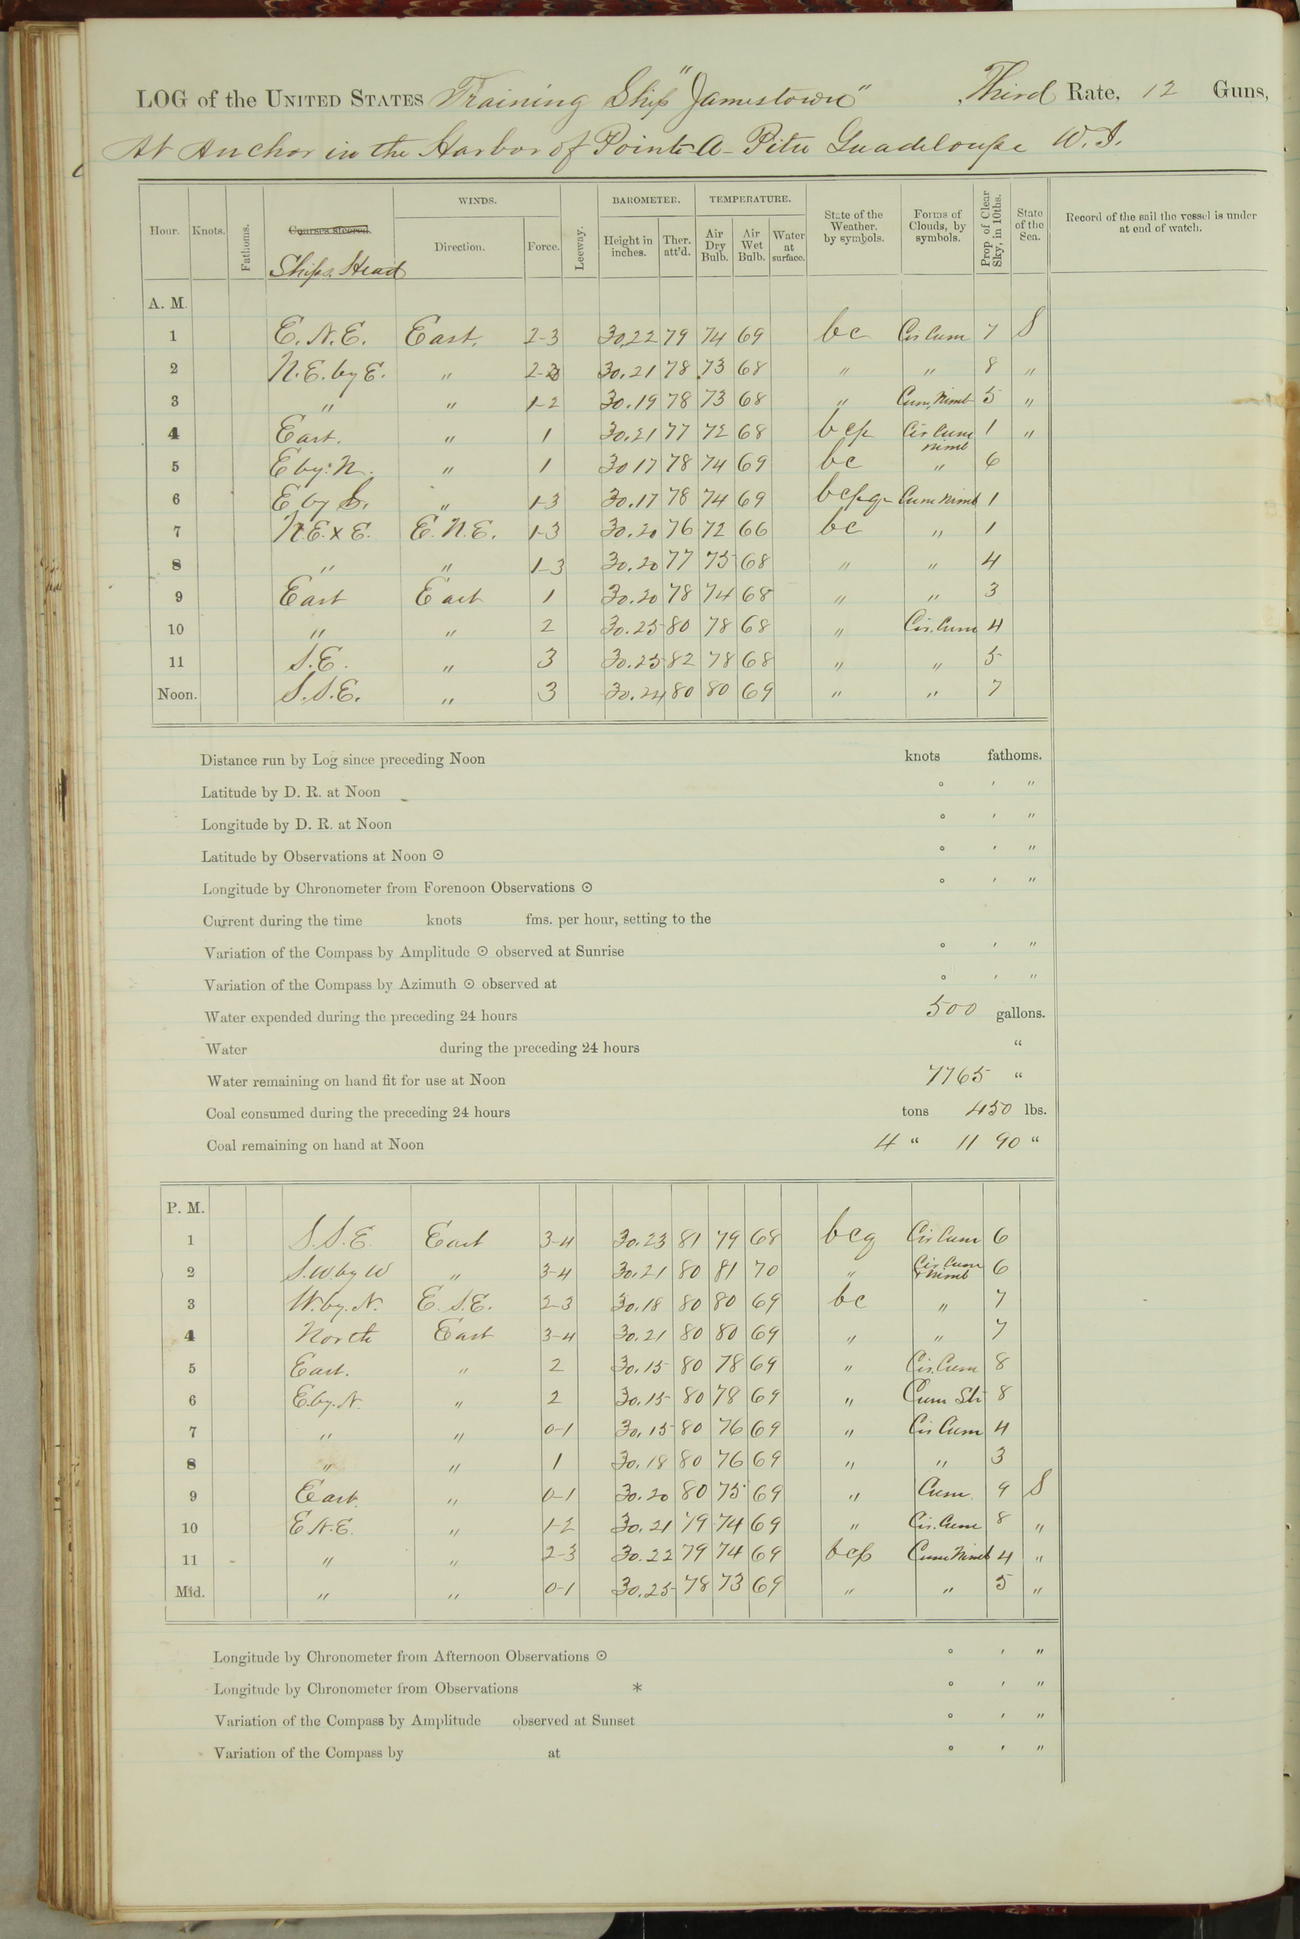 LOG of the UNITED STATES Training Ship "Jamestown" Third Rate, 12 Guns,
At Anchor in the Harbor of Pointe-A-Pitre Guadeloupe W.I.
Hour. Knots. Fathoms. Courses steered. Ships Head WINDS. Direction. Force. Leeway. BAROMETER. Height in inches. Ther. att'd. TEMPERATURE. Air Dry Bulb. Air Wet Bulb. Water at surface. State of the Weather. by symbols. Forms of Clouds, by symbols. Prop. of Clear Sky, in 10ths. State of the Sea. Record of the sail the vessel is under at end of watch.
A. M.
1 E.N.E. East. 2-3 30.22 79 74 69 bc Cir Cum 7 S
2 N.E. by E. " 2-3 30.21 78 73 68 " " 8 "
3 " " 1-2 30.19 78 73 68 " Cum, Nimb 5 "
4 East. " 1 30.21 77 72 68 bcp Cir Cum nimb 1 "
5 E by N. " 1 30 17 78 74 69 bc " 6
6 E by S. " 1-3 30.17 78 74 69 bcpq Cum Nimb 1
7 N.E. x E. E.N.E. 1-3 30.20 76 72 66 bc " 1
8 " " 1-3 30.20 77 75 68 " " 4
9 East East 1 30.20 78 74 68 " " 3
10 " " 2 30.25 80 78 68 " Cir. Cum 4
11 S.E. " 3 30.25 82 78 68 " " 5
Noon. S.S.E. " 3 30.24 80 80 69 " " 7
Distance run by Log since preceding Noon knots fathoms.
Latitude by D. R. at Noon ° ' "
Longitude by D. R. at Noon ° ' "
Latitude by Observations at Noon ☉ ° ' "
Longitude by Chronometer from Forenoon Observations ☉ ° ' "
Current during the time knots fms. per hour, setting to the
Variation of the Compass by Amplitude ☉ observed at Sunrise ° ' "
Variation of the Compass by Azimuth ☉ observed at ° ' "
Water expended during the preceding 24 hours 500 gallons.
Water during the preceding 24 hours "
Water remaining on hand fit for use at Noon 7765 "
Coal consumed during the preceding 24 hours tons 450 lbs.
Coal remaining on hand at Noon 4 " 11 90 "
P. M.
1 S.S.E. East 3-4 30.23 81 79 68 bcq Cir Cum 6
2 S.W. by W " 3-4 30.21 80 81 70 " Cir. Cum & Nimb 6
3 W. by. N. E. S.E. 2-3 30.18 80 80 69 bc " 7
4 North East 3-4 30.21 80 80 69 " " 7
5 East. " 2 30.15 80 78 69 " Cir. Cum 8
6 E. by. N. " 2 30.15 80 78 69 " Cum Str 8
7 " " 0-1 30.15 80 76 69 " Cir Cum 4
8 " " 1 30.18 80 76 69 " " 3
9 East. " 0-1 30.20 80 75 69 " Cum. 9 S
10 E.N.E. " 1-2 30.21 79 74 69 " Cir. Cum 8 "
11 " " 2-3 30.22 79 74 69 bcp Cum Nimb 4 "
Mid. " " 0-1 30.25 78 73 69 " " 5 "
Longitude by Chronometer from Afternoon Observations ☉ ° ' "
Longitude by Chronometer from Observations * ° ' "
Variation of the Compass by Amplitude observed at Sunset ° ' "
Variation of the Compass by at ° ' "